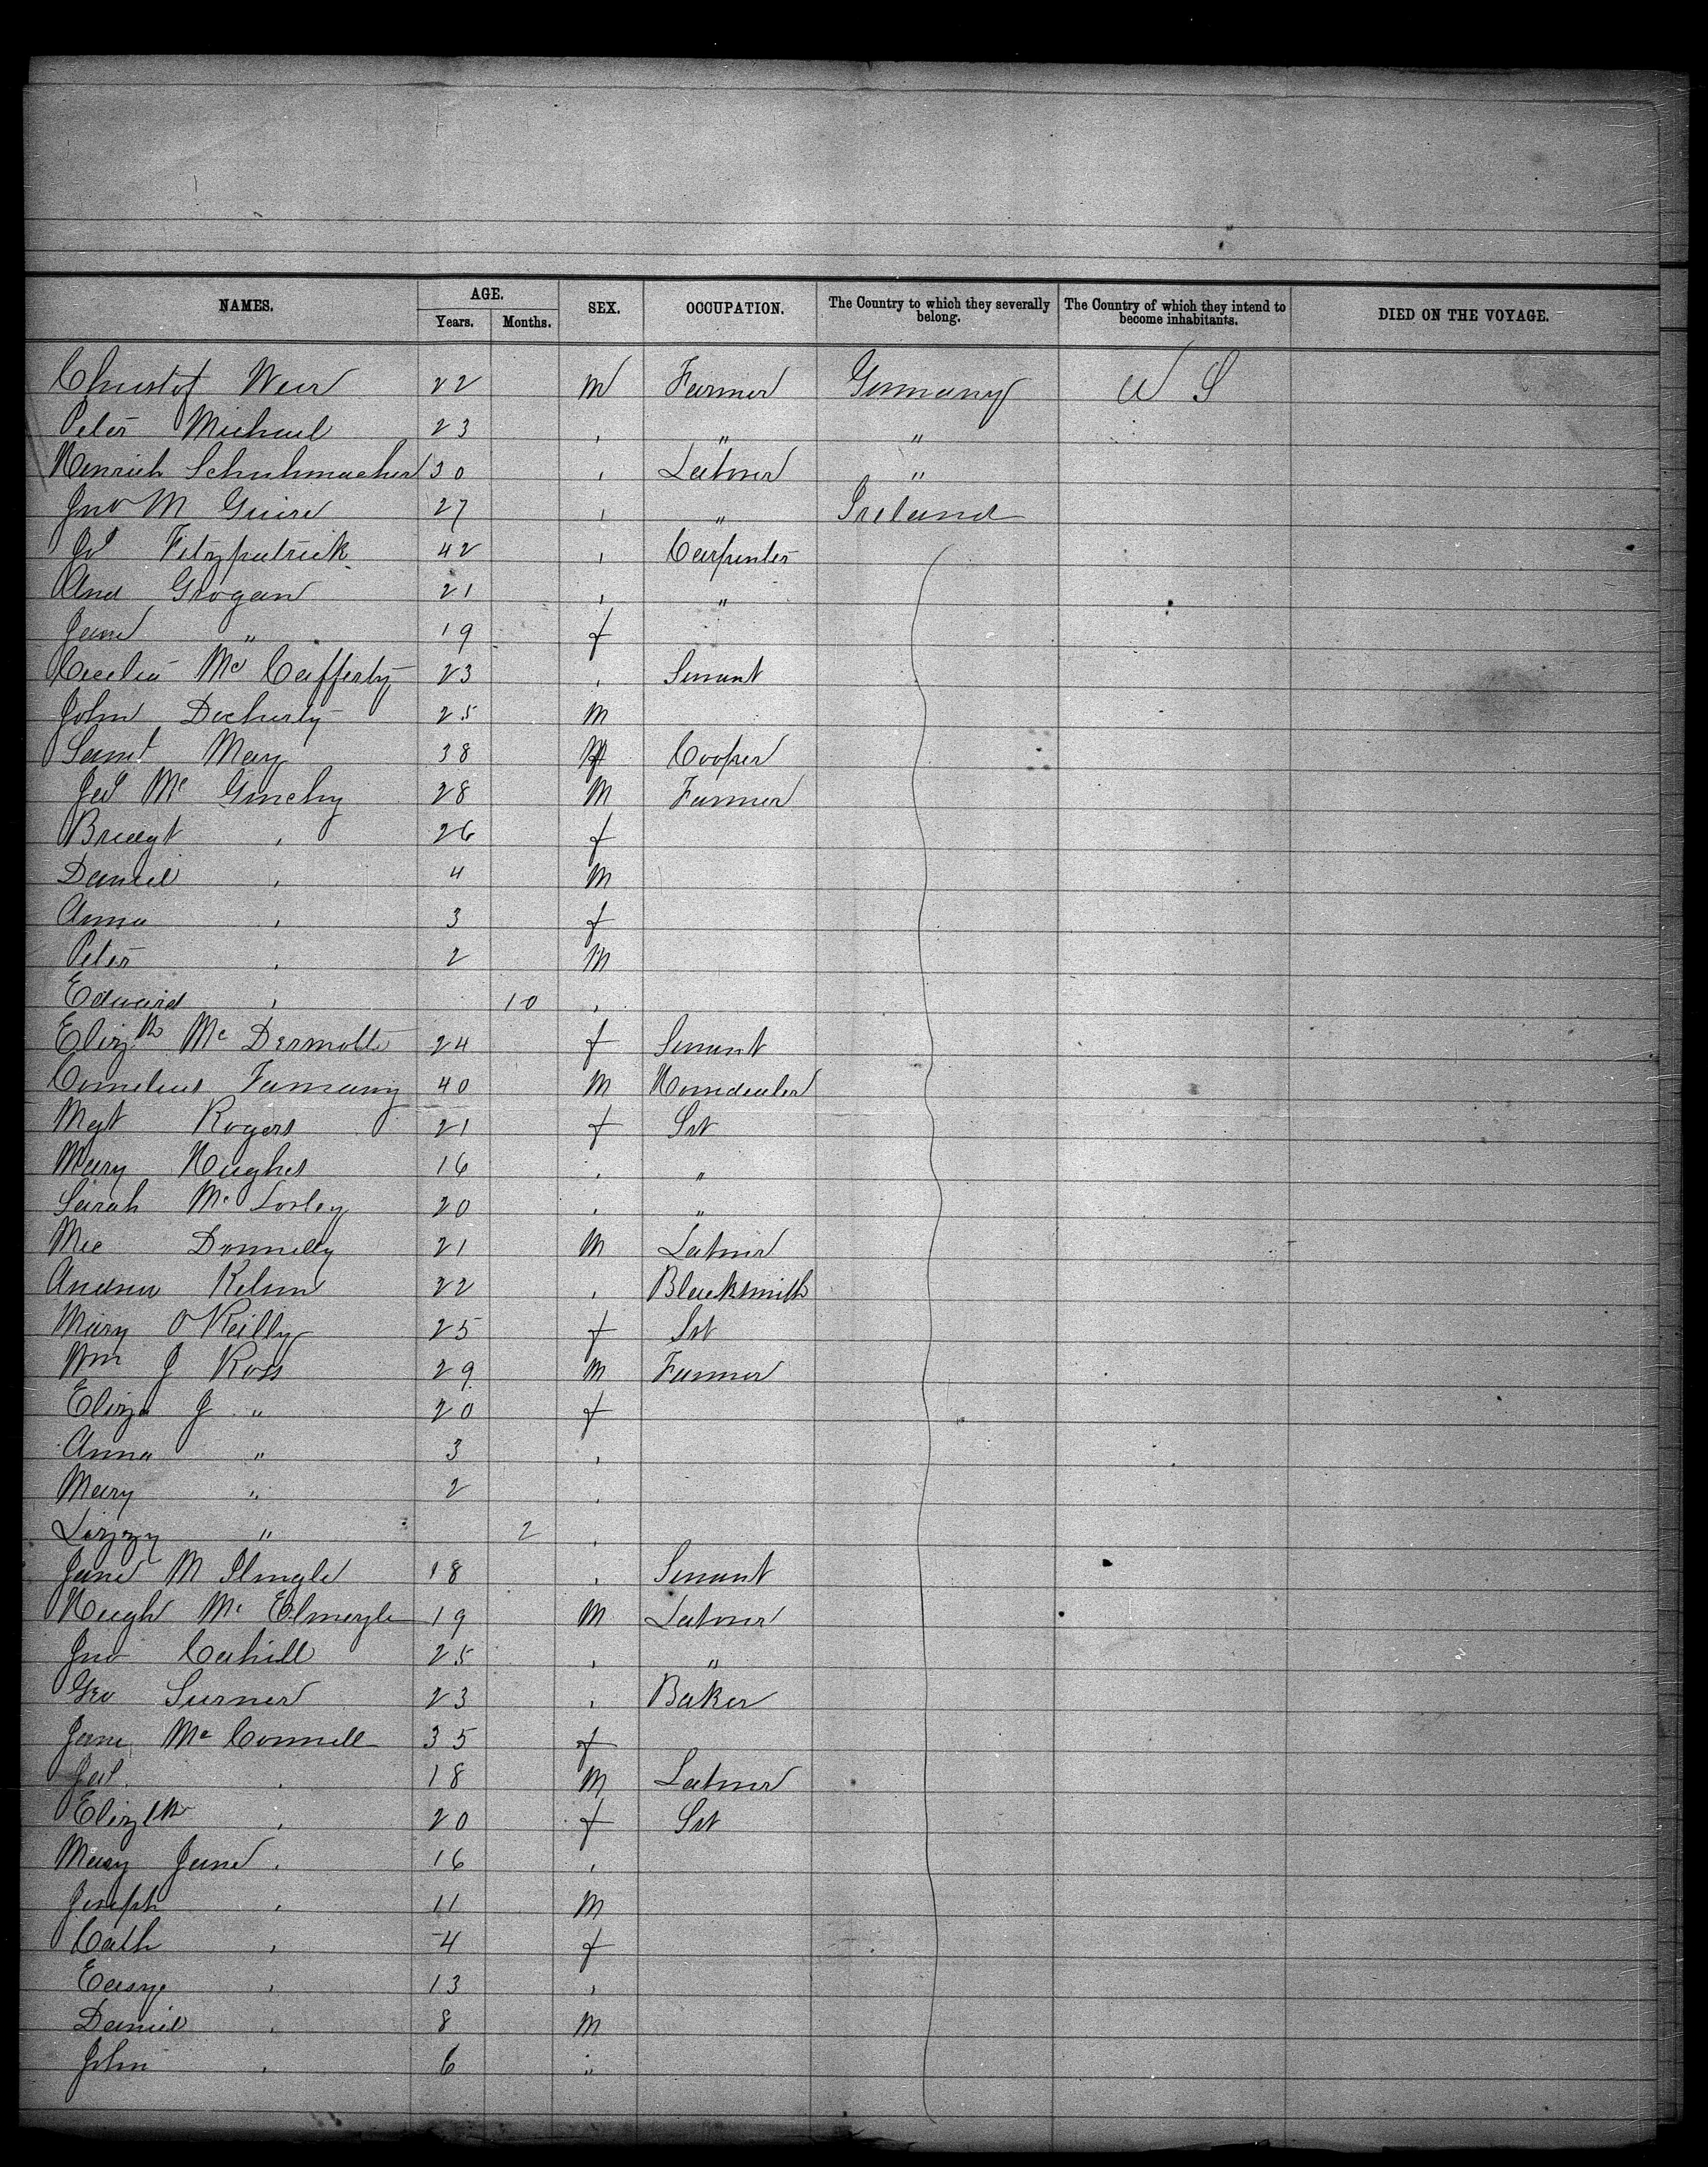 NAMES. AGE. SEX. OCCUPATION. The Country to which they severally belong. The Country of which they intend to become inhabitants. DIED ON THE VOYAGE.
Years. Months.
Christof Weir 22 M Farmer Germany U S
Peter Michael 23 , " "
Henrich Schuhmacher 30 , Labourer "
Jno M Guire 27 , " Ireland
Jas Fitzpatrick 42 , Carpenter
And Grogan 21 , "
Jane " 19 f
Cecelia Mc Cafferty 23 , Servant
John Docherty 25 M
Saml May 38 M Cooper
Jas Mc Ginchy 28 M Farmer
Bridgt , 26 f
Daniel , 4 M
Anna , 3 f
Peter , 2 M
Edward , 10 ,
Elizth Mc Dermott 24 f Servant
Cornelius 40 M Horsedealer
Mgt Rogers 21 f Svt
Mary Hughes 16 , "
Sarah Mc Sorley 20 , "
Mic Donnelly 21 M Labourer
Andrew 22 , Blacksmith
Mary O'Reilly 25 f Svt
Wm J Ross 29 M Farmer
Eliza J " 20 f
Anna " 3 ,
Mary " 2 ,
Lizzy " 2 ,
Jane M 18 , Servant
Hugh Mc Elmoyle 19 M Labourer
Jno Cahill 25 , "
Geo 23 , Baker
Jane Mc Connell 35 f
Jas , 18 M Labourer
Elizth , 20 f Svt
Mary Jane , 16 ,
Joseph , 11 M
Cath , 4 f
, 13 ,
Daniel , 8 M
John , 6 "